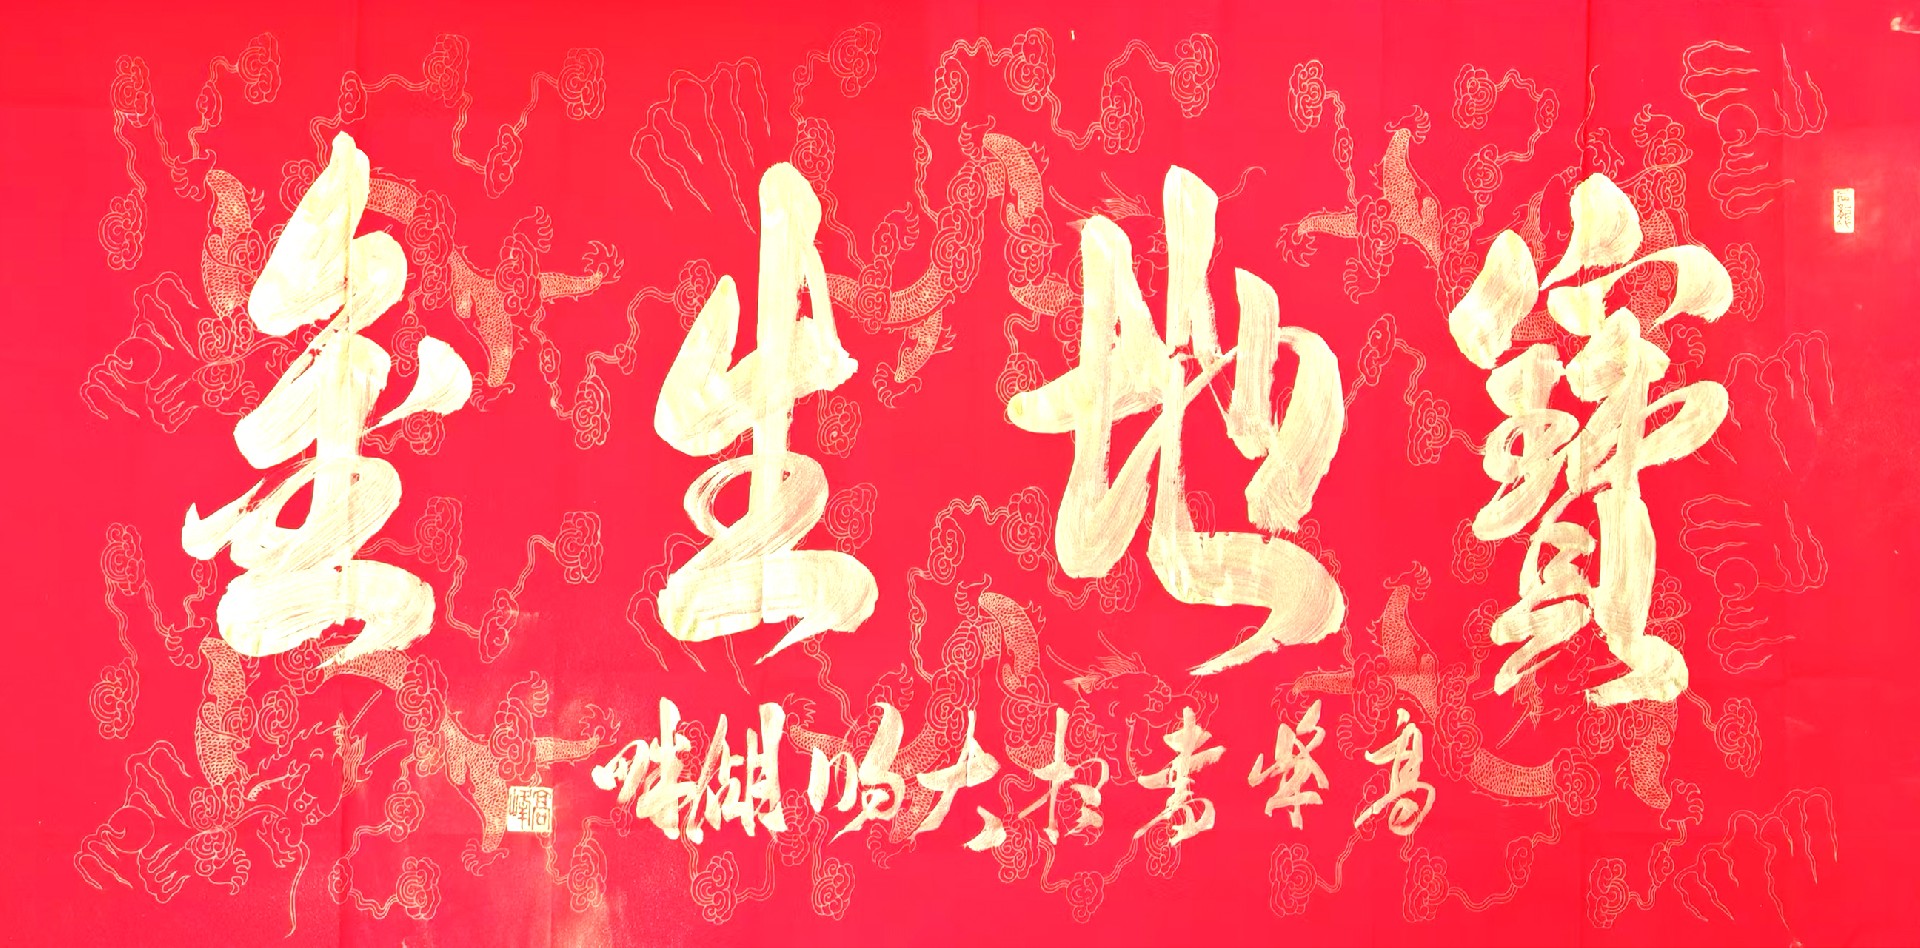 寶地生金
高峰書於大明湖畔
高峰